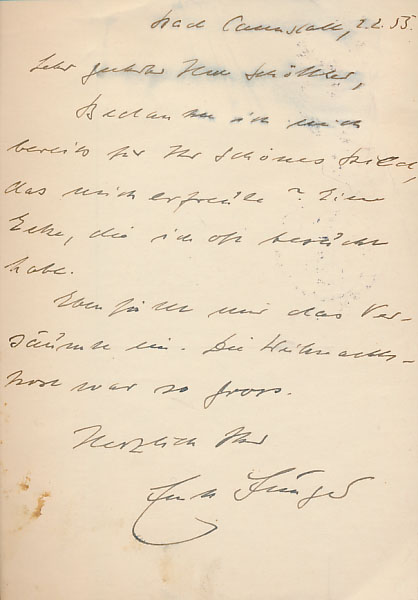 Bad Cannstatt, 2.2.53.
Sehr geehrter Herr Schöttler,
Bedankte ich mich
bereits für Ihr schönes Bild,
das mich erfreute? Eine
Ecke, die ich oft besucht
habe.
Eben fällt mir das Ver-
säumte ein. Die Weihnachts-
post war so gross.
Herzlich Ihr
Ernst Jünger